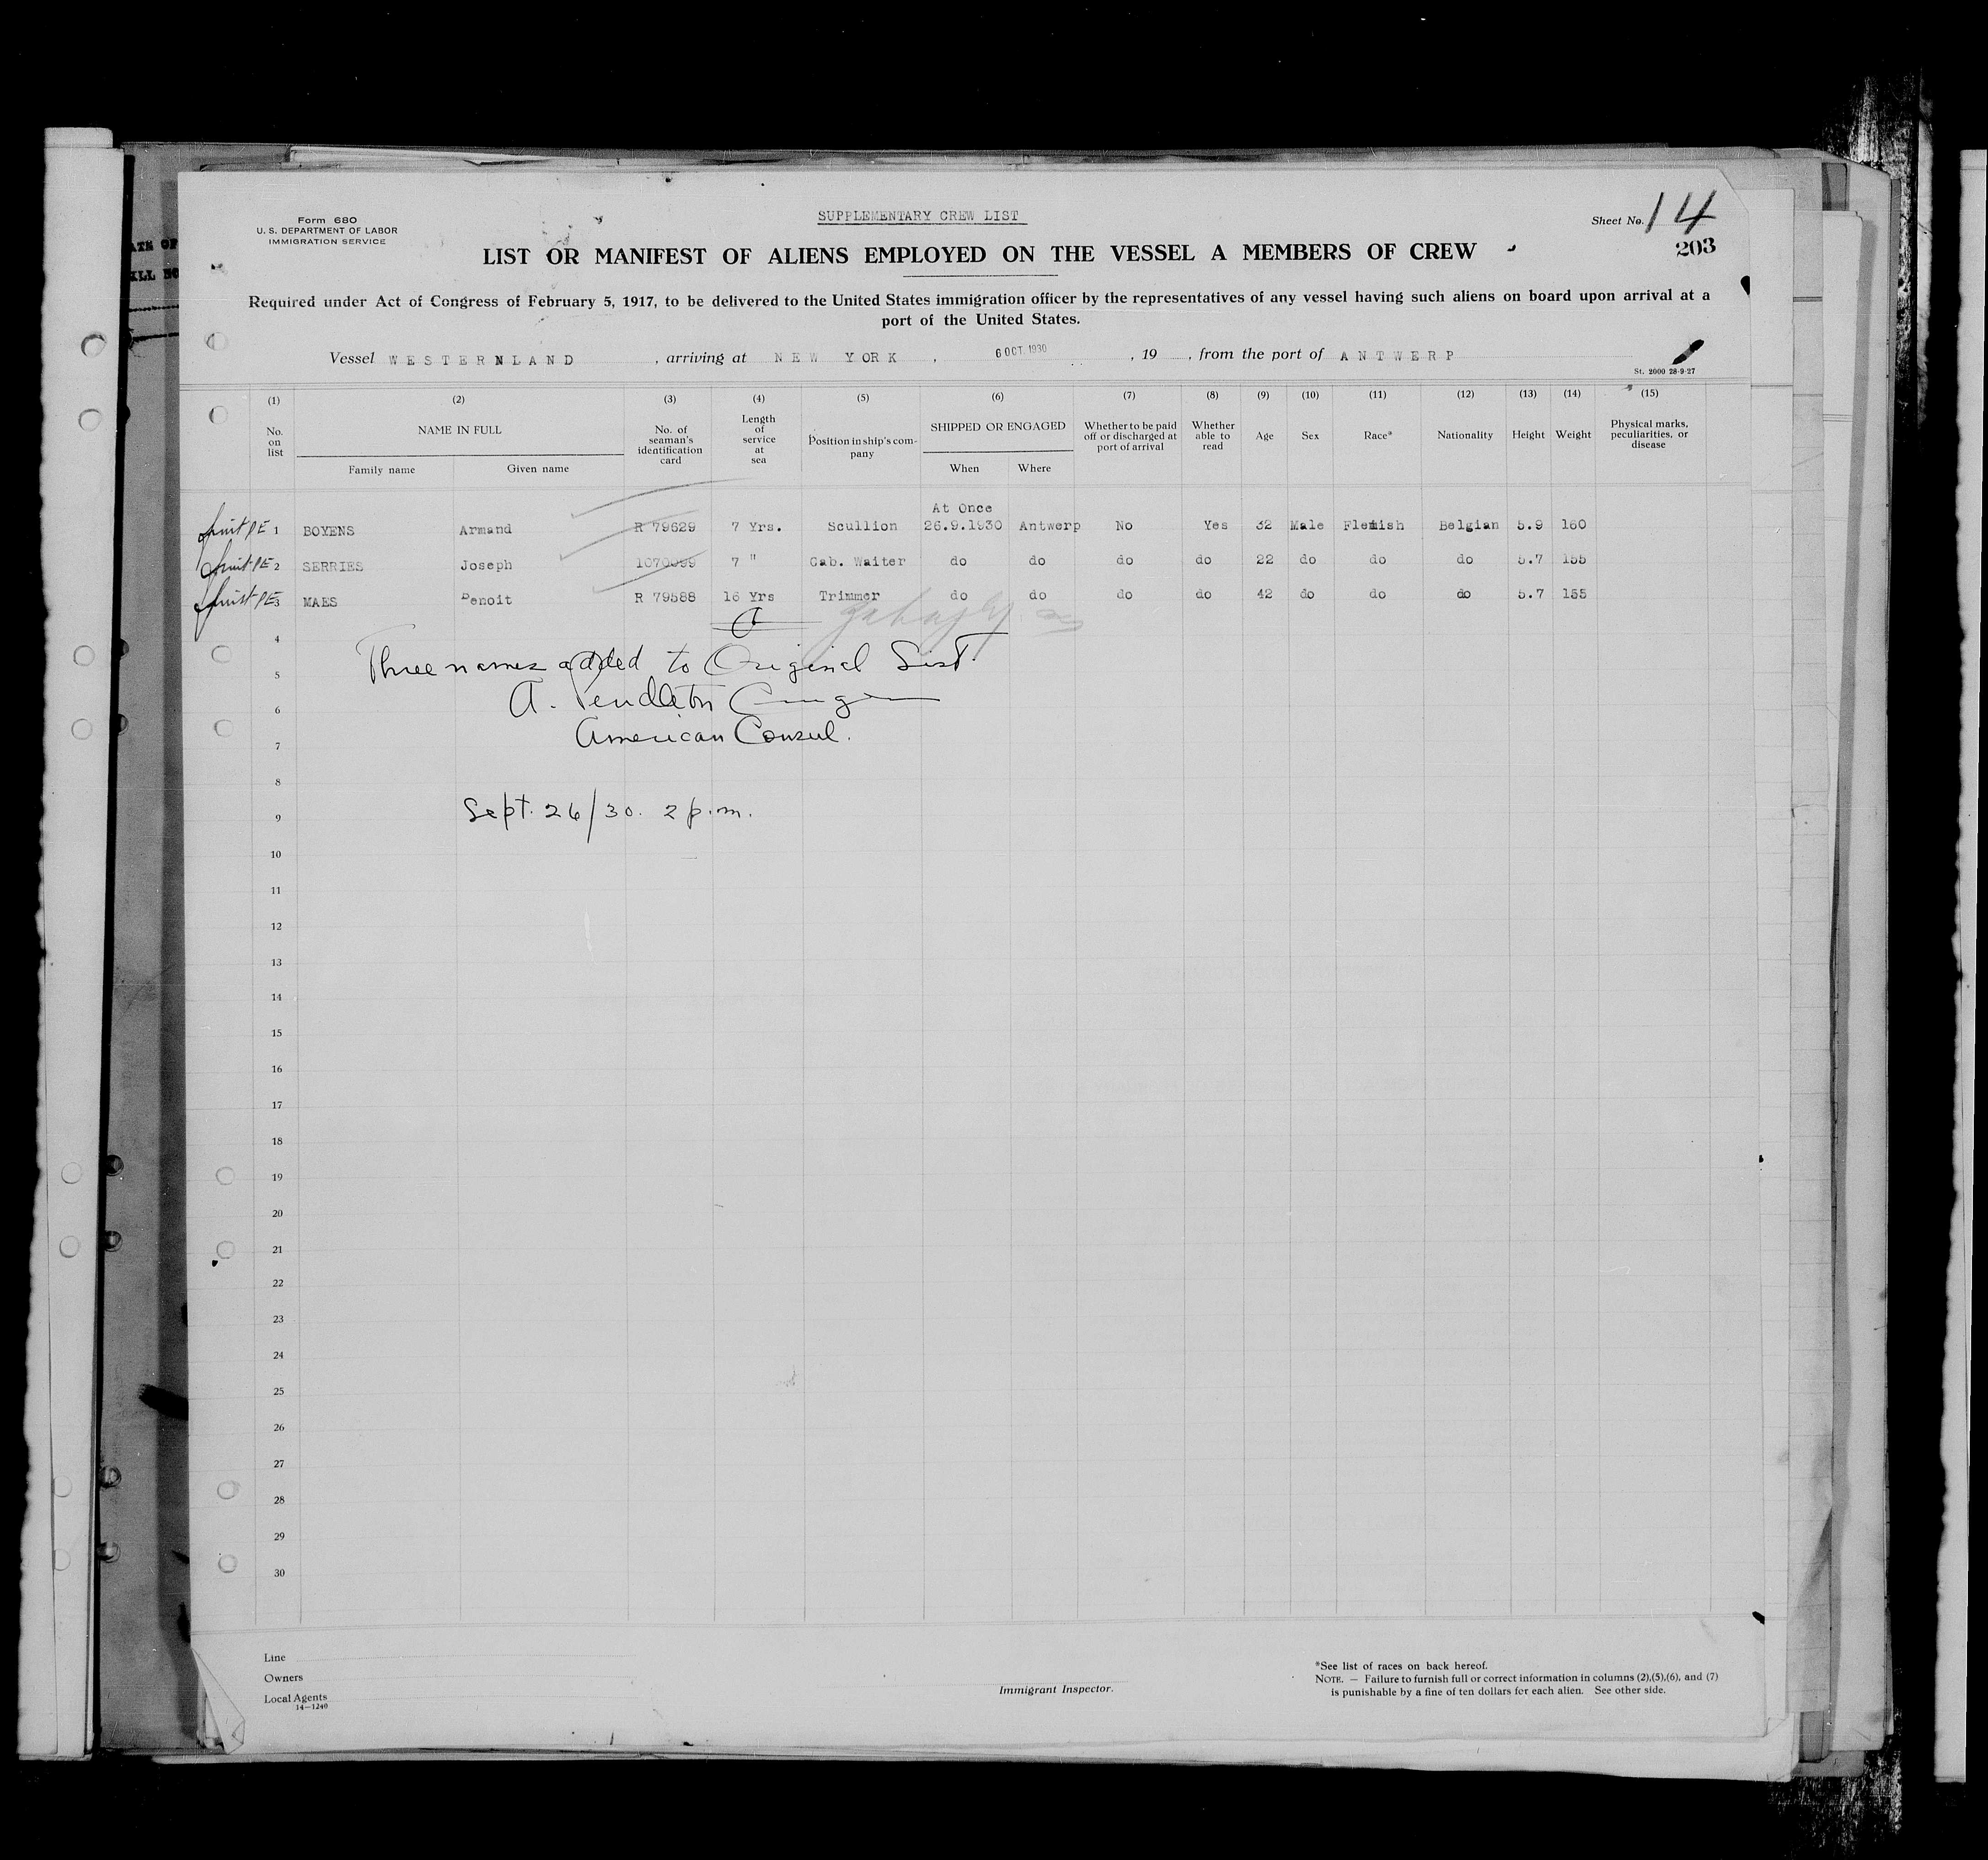 SUPPLEMENTARY CREW LIST
Form 680
U. S. DEPARTMENT OF LABOR
IMMIGRATION SERVICE
Sheet No. 14
203
LIST OR MANIFEST OF ALIENS EMPLOYED ON THE VESSEL A MEMBERS OF CREW
Required under Act of Congress of February 5, 1917, to be delivered to the United States immigration officer by the representatives of any vessel having such aliens on board upon arrival at a
port of the United States.
Vessel WESTERNLAND , arriving at NEW YORK , 6 OCT. 1930 , 19 , from the port of ANTWERP
St. 2000 28-9-27
(1) (2) (3) (4) (5) (6) (7) (8) (9) (10) (11) (12) (13) (14) (15)
No. on list
NAME IN FULL
Family name Given name
No. of seaman's identification card
Length of service at sea
Position in ship's com-
pany
SHIPPED OR ENGAGED
When Where
Whether to be paid off or discharged at port of arrival
Whether able to read
Age
Sex
Race*
Nationality
Height
Weight
Physical marks, peculiarities, or disease
At Once
1 BOYENS Armand R 79629 7 Yrs. Scullion 26.9.1930 Antwerp No Yes 32 Male Flemish Belgian 5.9 160
2 SERRIES Joseph 1070099 7 " Cab. Waiter do do do do 22 do do do 5.7 155
3 MAES Benoit R 79588 16 Yrs Trimmer do do do do 42 do do do 5.7 155
4
Three names added to Original List.
5
A. Pendleton
6
American Consul.
7
8
Sept. 26/30. 2 p.m.
9
10
11
12
13
14
15
16
17
18
19
20
21
22
23
24
25
26
27
28
29
30
Line
Owners
Local Agents
14—1240
Immigrant Inspector.
*See list of races on back hereof.
NOTE. — Failure to furnish full or correct information in columns (2),(5),(6), and (7)
is punishable by a fine of ten dollars for each alien. See other side.